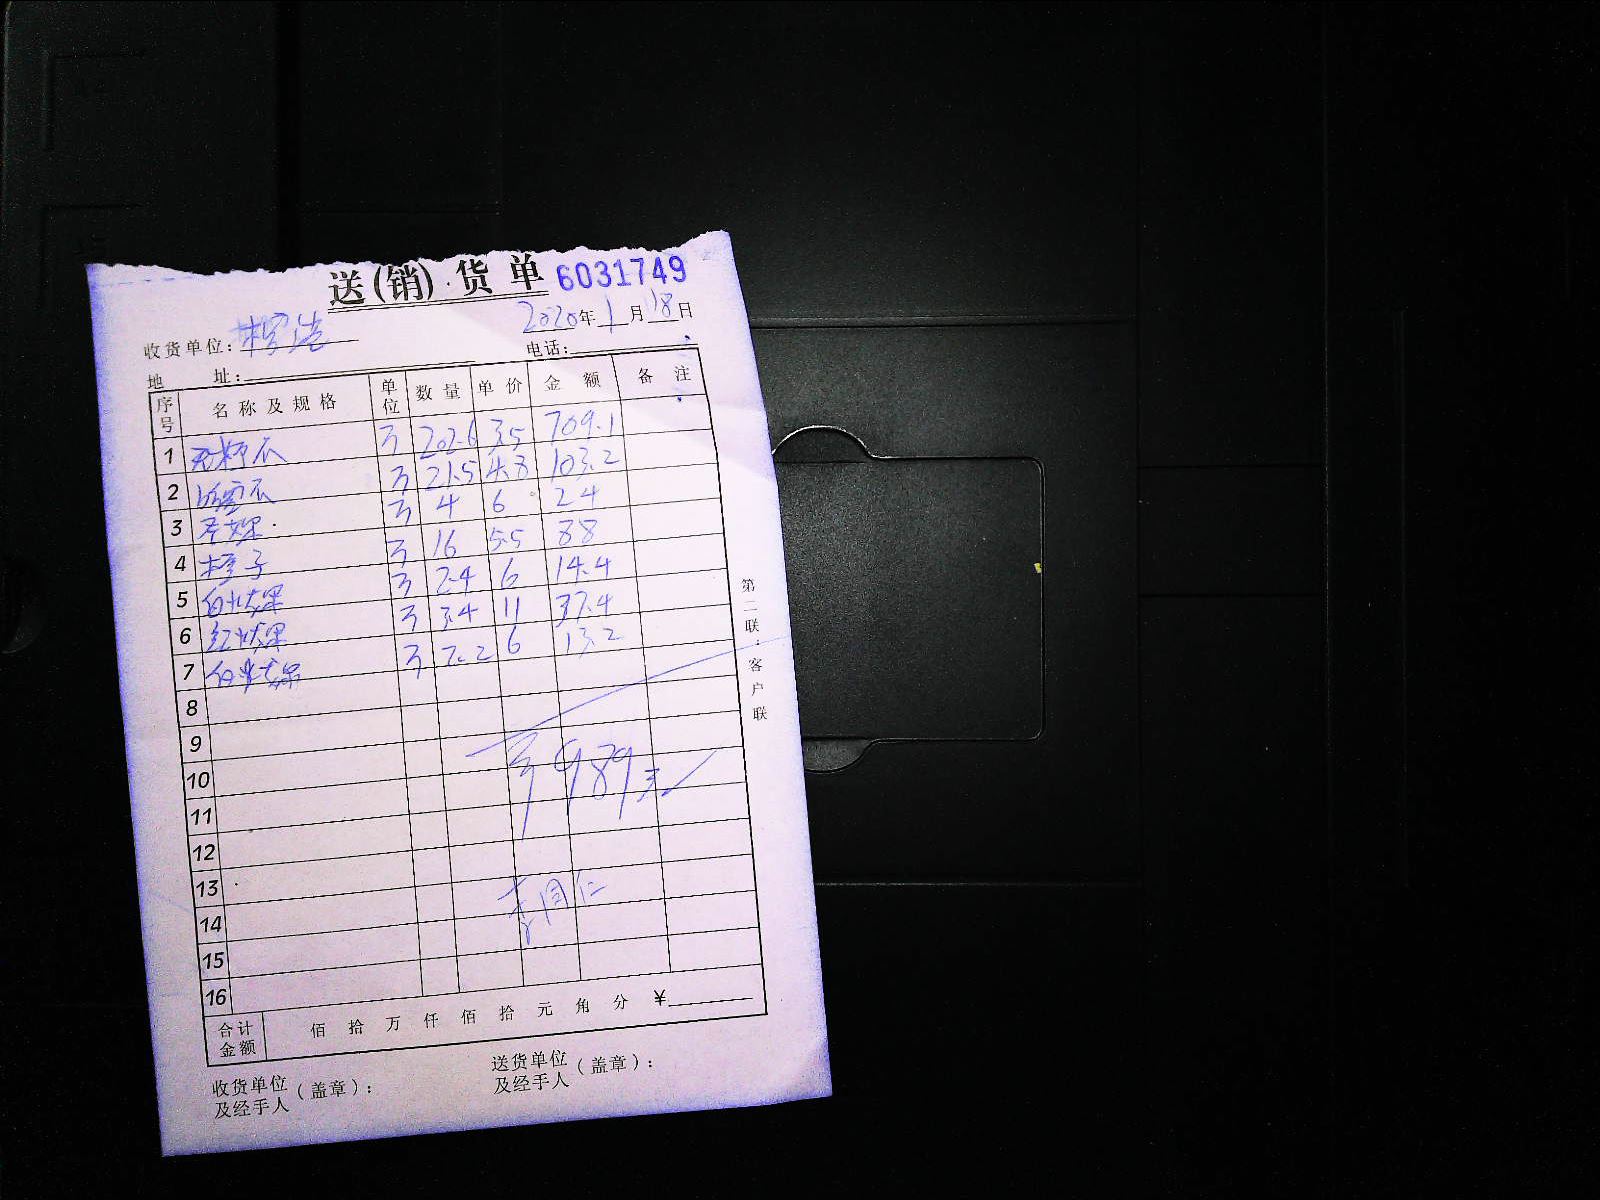 送(销)货单 6031749
2020年1月18日
收货单位:
电话:
地 址:
序号 名称及规格 单位 数量 单价 金额 备注
1 无籽瓜 斤 202.6 3.5 709.1
2 哈密瓜 斤 21.5 4.8 103.2
3 圣女果 斤 4 6 24
4 橙子 斤 16 5.5 88
5 白火龙果 斤 2.4 6 14.4
6 红火龙果 斤 3.4 11 37.4
7 白火龙果 斤 2.2 6 13.2
8
9
10
11
12
13
14
15
16
989元
李国仁
合计金额 佰 拾 万 仟 佰 拾 元 角 分 ¥
收货单位及经手人(盖章):
送货单位及经手人(盖章):
第二联:客户联